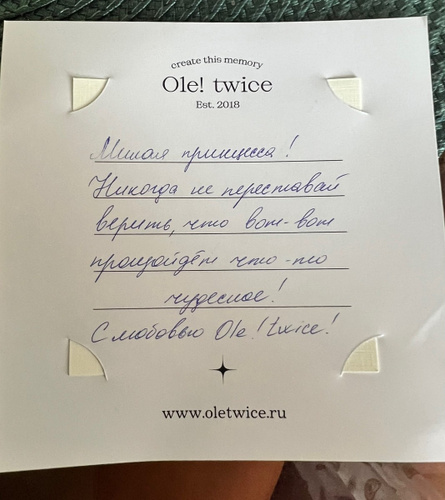 create this memory
Ole! twice
Est. 2018
Милая принцесса!
Никогда не переставай
верить, что вот-вот
произойдёт что-то
чудесное!
С любовью Ole! twice!
www.oletwice.ru